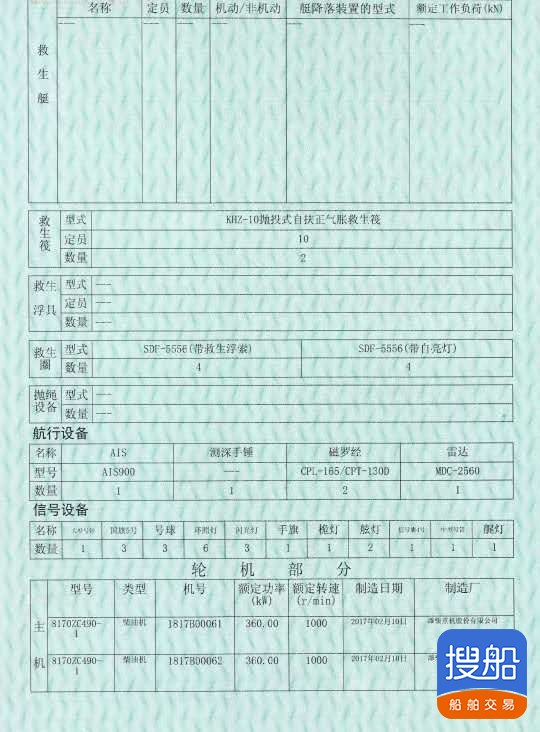 名称 定员 数量 机动/非机动 艇降落装置的型式 额定工作负荷(kN)
救生艇 --- --- --- --- --- ---
救生筏 型式 KHZ-10抛投式自扶正气胀救生筏
定员 10
数量 2
救生浮具 型式 ---
定员 ---
数量 ---
救生圈 型式 SDF-5556(带救生浮索) SDF-5556(带自亮灯)
数量 4 4
抛绳设备 型式 ---
数量 ---
航行设备
名称 AIS 测深手锤 磁罗经 雷达
型号 AIS900 --- CPL-165/CPT-130D MDC-2560
数量 1 1 2 1
信号设备
名称 大型号钟 国旗5号 号球 环照灯 闪光灯 手旗 桅灯 舷灯 信号旗4号 中型号笛 艉灯
数量 1 3 3 6 3 1 1 2 1 1 1
轮机部分
型号 类型 机号 额定功率(kW) 额定转速(r/min) 制造日期 制造厂
主机 8170ZC490-1 柴油机 1817B00061 360.00 1000 2017年02月10日 潍柴重机股份有限公司
8170ZC490-1 柴油机 1817B00062 360.00 1000 2017年02月10日 潍柴
搜船
船舶交易